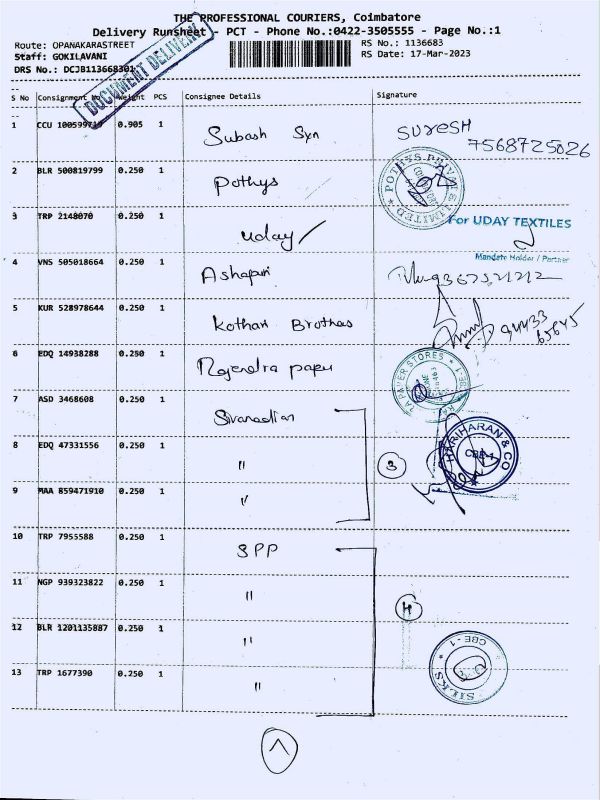 THE PROFESSIONAL COURIERS, Coimbatore
Delivery Runsheet - PCT - Phone No.:0422-3505555 - Page No.:1
Route: OPANAKARASTREET RS No.: 1136683
Staff: GOKILAVANI RS Date: 17-Mar-2023
DRS No.: DCJB113668301
DOCUMENT DELIVERY
S No Consignment No Weight PCS Consignee Details Signature
1 CCU 0.905 1 Subash Syn SURESH
7568725026
2 BLR 500819799 0.250 1 Pothys
POTHYS PRIVATE LIMITED
3 TRP 2148070 0.250 1 Uday For UDAY TEXTILES
Mandate Holder / Partner
4 VNS 505018664 0.250 1 Ashapuri
5 KUR 528978644 0.250 1 Kothari Brothers 94433
65645
6 EDQ 14938288 0.250 1 Rajendra paper
PAPER STORES
7 ASD 3468608 0.250 1
HARIHARAN & CO
CBE-1
8 EDQ 47331556 0.250 1 " 3
9 MAA 859471910 0.250 1 "
10 TRP 7955588 0.250 1 SPP
11 NGP 939323822 0.250 1 " 4
12 BLR 1201135887 0.250 1 "
13 TRP 1677390 0.250 1 "
SILKS * CBE-1 *